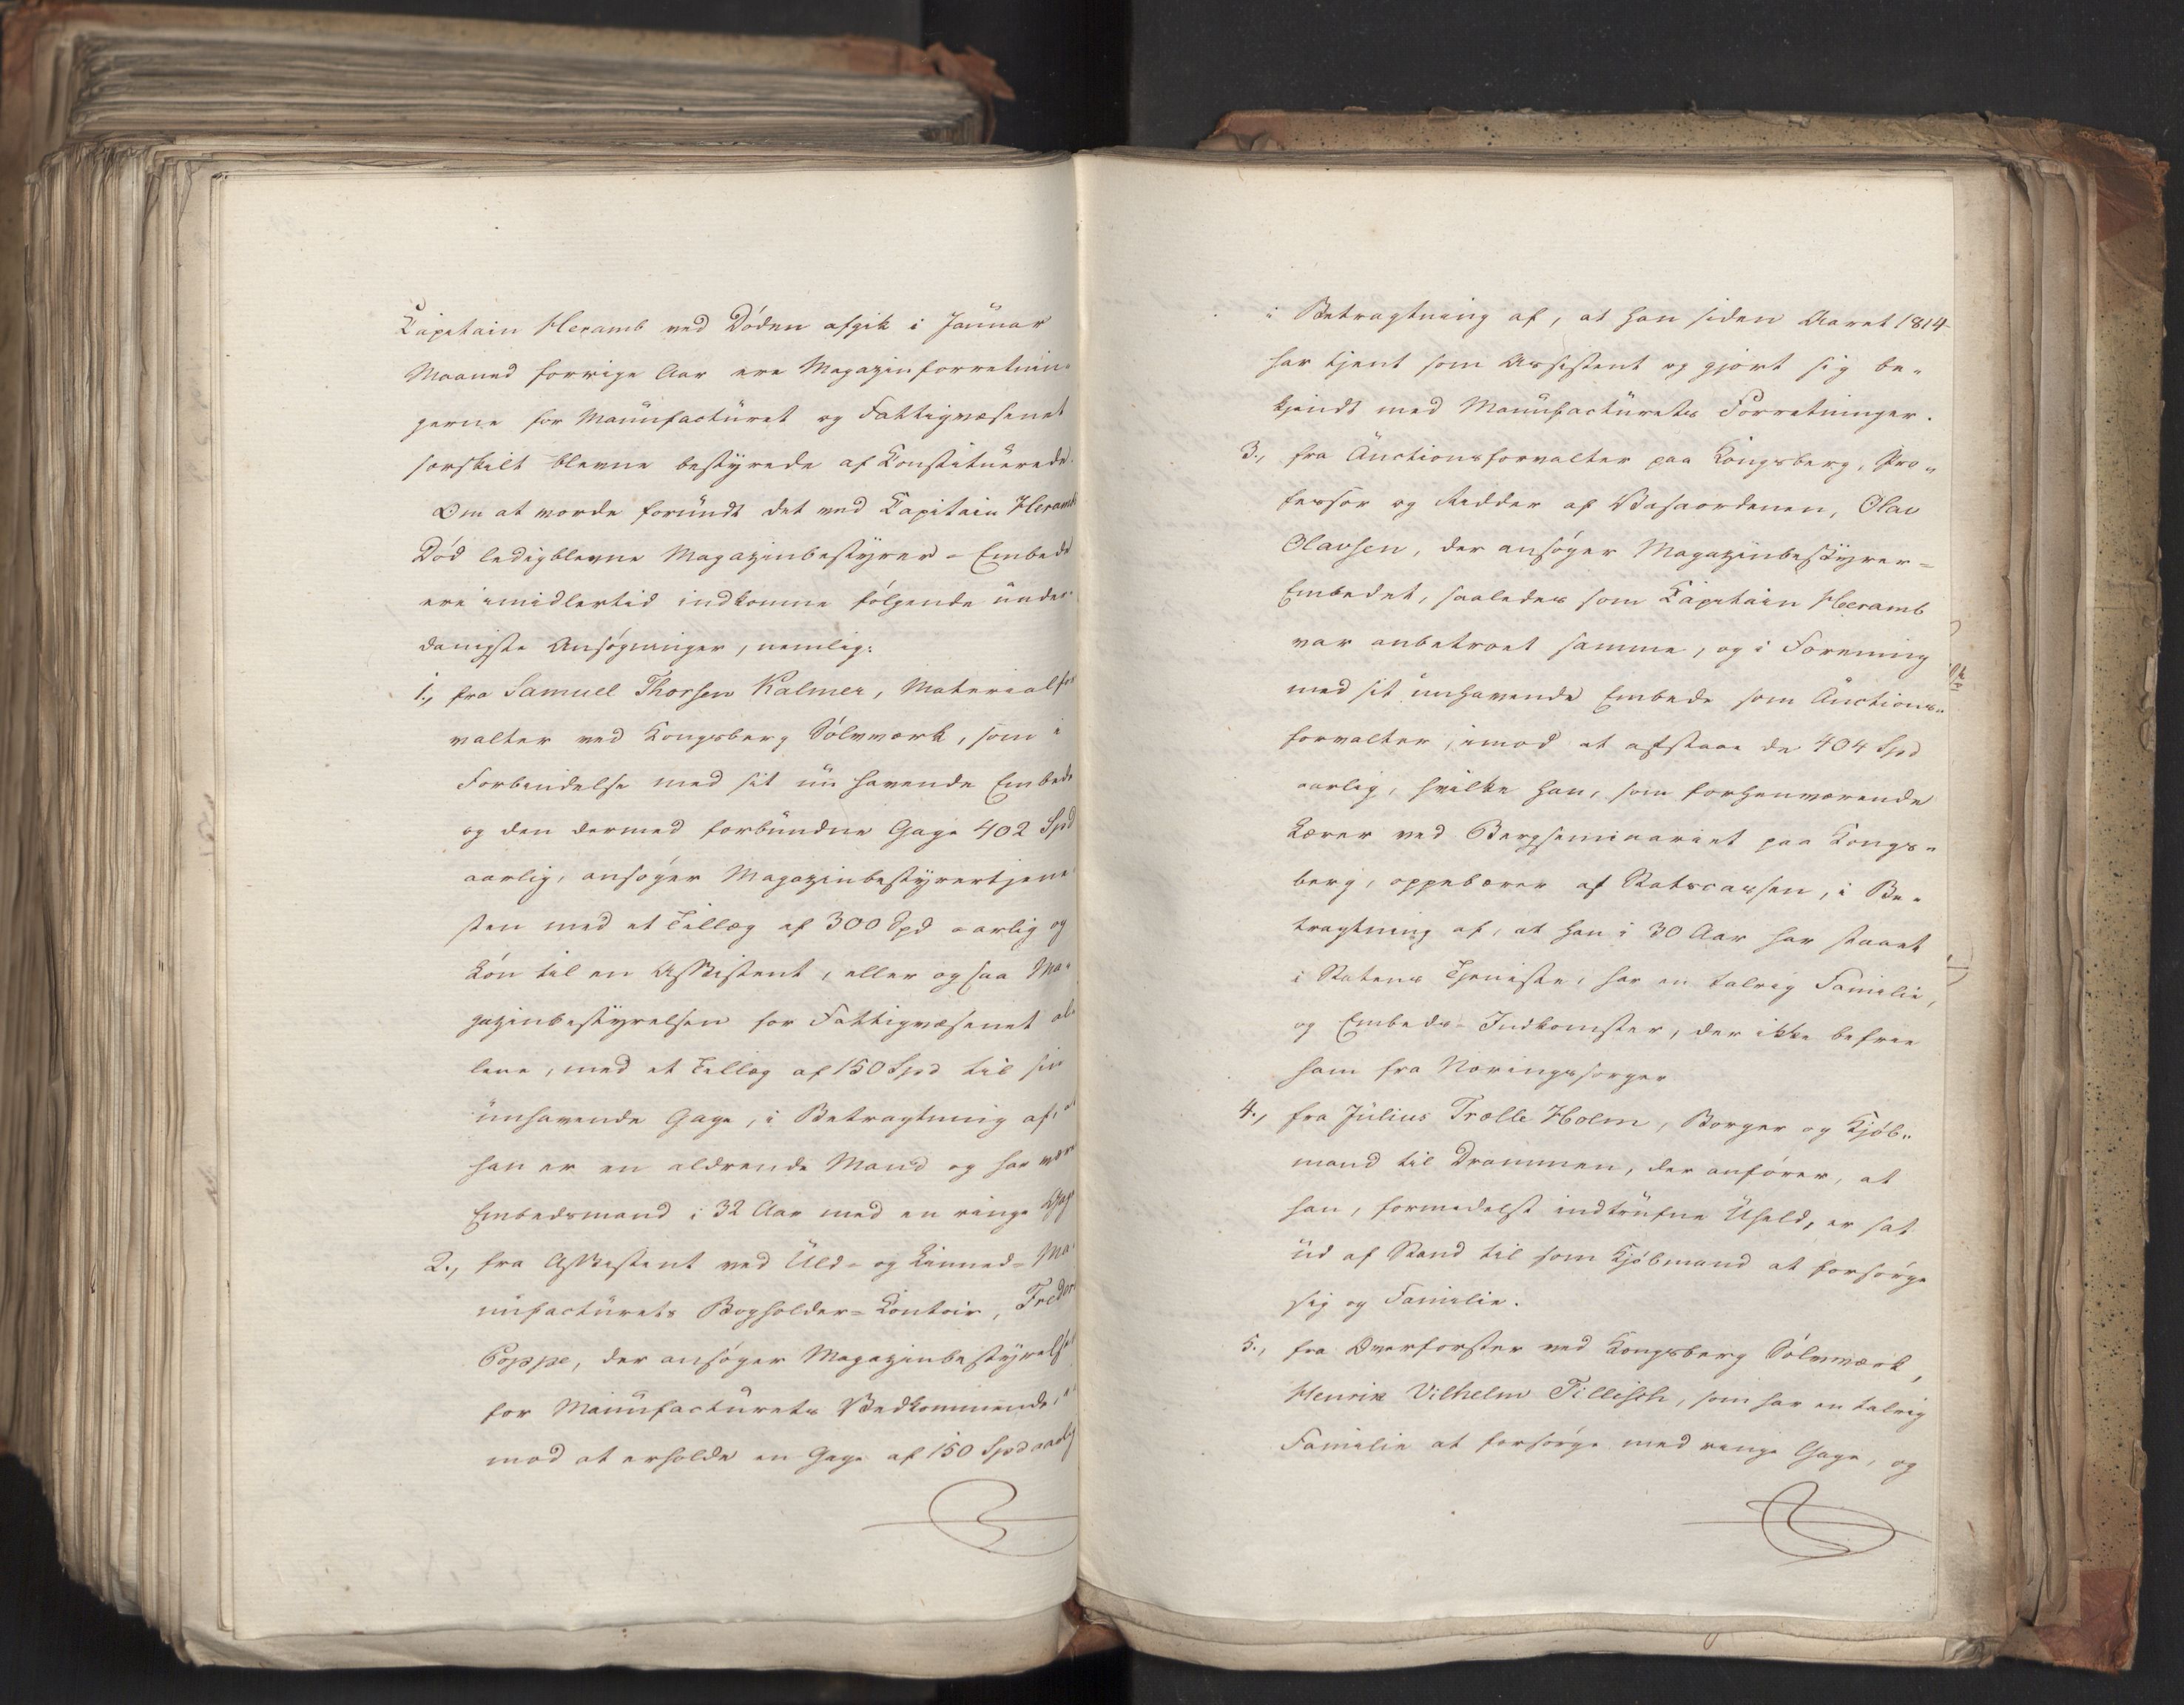 Capitain Heramb ved Døden afgik i Januar
Maaned forrige Aar ere Magazinforretnin-
gerne for Manufacturet og Fattigvæsenet
særskilt blevne bestyrede af Constituerede.
Om at vorde forundt det ved Capitain Heramb
Død ledigblevne Magazinbestyrer-Embede
ere imidlertid indkomne følgende under-
danigste Ansøgninger, nemlig:
1., fra Samuel Thorsen Kalmer, Materialfor
valter ved Kongsberg Sølvværk, som i
Forbindelse med sit nu havende Embede
og den dermed forbundne Gage 402 Spd
aarlig, ansøger Magazinbestyrertjene
sten med et Tillæg af 300 Spd aarlig og
Løn til en Assistent, eller og saa Ma-
gazinbestyrelsen for Fattigvæsenet al-
lene, med et Tillæg af 150 Spd til sin
nuhavende Gage, i Betragtning af, at
han er en aldrende Mand og har været
Embedsmand i 32 Aar med en ringe Gage
2., fra Assistent ved Uld- og Linned-Ma-
nufacturets Bogholder-Contoir, Fredor
Poppe, der ansøger Magazinbestyrelsen
for Manufacturets Vedkommende,
mod at erholde en Gage af 150 Spd aarlig
i Betragtning af, at han siden Aaret 1814
har tjent som Assistent og gjort sig be-
kjendt med Manufacturets Forretninger.
3., fra Auctionsforvalter paa Kongsberg, Pro-
fessor og Ridder af Vasaordenen, Olav
Olavsen, der ansøger Magazinbestyrer-
Embedet, saaledes som Capitain Heramb
var anbetroet samme, og i Forening
med sit nuhavende Embede som Auctions-
forvalter, imod at afstaae de 404 Spd
aarlig, hvilke han, som forhenværende
Lærer ved Bergseminariet paa Kongs-
berg, oppebærer af Statscassen, i Be-
tragtning af, at han i 30 Aar har staaet
i Statens Tjeneste, har en talrig Familie,
og Embeds-Indkomster, der ikke befrie
ham fra Næringssorger
4., fra Julius Trælle Holm, Borger og Kjøb-
mand til Drammen, der anfører, at
han, formedelst indtrufne Uheld, er sat
ud af Stand til som Kjøbmand at forsørge
sig og Familie.
5., fra Overforster ved Kongsberg Sølvværk,
Henrik Vilhelm Tillisch, som har en talrig
Familie at forsørge med ringe Gage, og